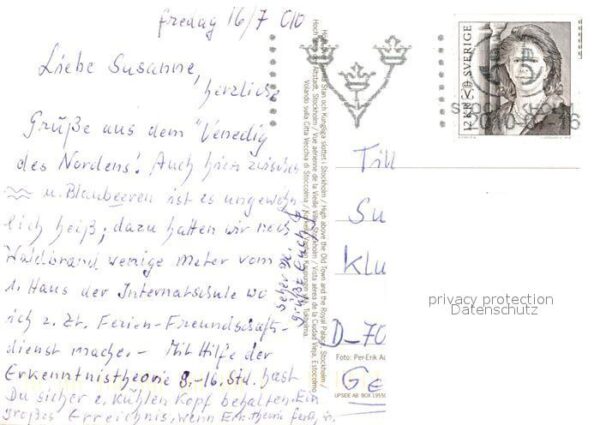 fredag 16/7 010
Liebe Susanne,
herzliche
Grüße aus dem "Venedig
des Nordens! Auch hier zwischen
u. Blaubeeren ist es ungewöhn
lich heiß; dazu hatten wir noch
Waldbrand wenige Meter vom
1. Haus der Internatschule wo
ich z. Zt. Ferien-Freundschafts-
dienst mache. - Mit Hilfe der
Erkenntnistheorie 8.-16. Std. hast
Du sicher e. kühlen Kopf behalten. Ein
großes Erreichnis, wenn Erk.theorie
grüßt Euch
Stan och Kungliga slottet i Stockholm / High above the Old Town and the Royal Palace, Stockholm /
Altstadt, Stockholm / Vue aérienne de la Vieille Ville, Stockholm / Vista aérea de la Ciudad Vieja, Estocolmo
Visione della Città Vecchia di Stoccolma
SVERIGE
12 KR
STOCKHOLM
Till
Su
Klu
D-70
Ge
Foto: Per-Erik
privacy protection
Datenschutz